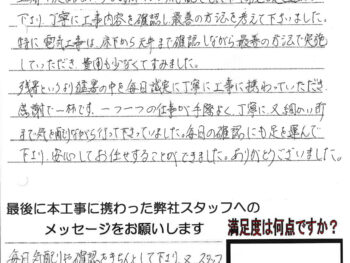 下り、丁寧に工事内容を確認し最善の方法を考えて下さいました。
特に電気工事は、床下から天井まで確認しながら最善の方法で実施
していただき、費用も少なくてすみました。
残暑というより猛暑の中を毎日誠実に丁寧に工事に携わっていただき、
感謝で一杯です。一つ一つの仕事が手際よく、丁寧に、又細かい所
まで気を配りながら行って下さっていました。毎日の確認にも足を運んで
下さり、安心してお任せすることができました。ありがとうございました。
最後に本工事に携わった弊社スタッフへの
メッセージをお願いします
満足度は何点ですか?
毎日気配りや確認をきちんとして下さり、又、スタッフ